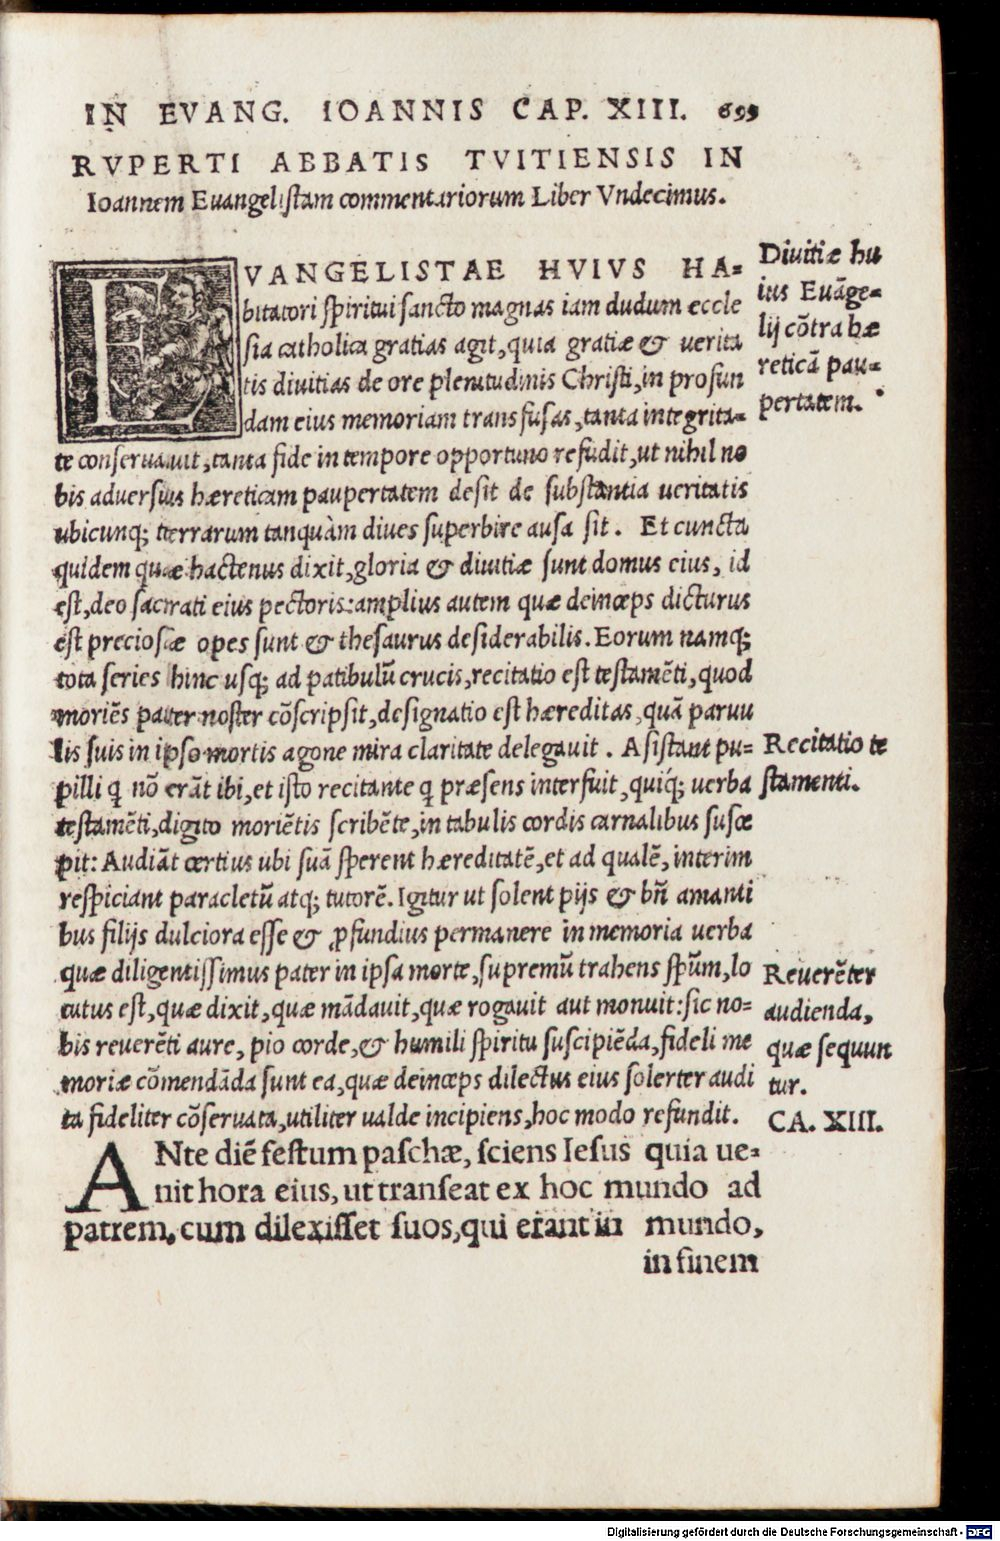 IN EVANG. IOANNIS CAP. XIII. 699
RVPERTI ABBATIS TVITIENSIS IN
Ioannem Euangelistam commentariorum Liber Vndecimus.
EVANGELISTAE HVIVS HA-
bitatori spiritui sancto magnas iam dudum eccle
sia catholica gratias agit, quia gratiæ & verita
tis diuitias de ore plenitudinis Christi, in profun
dam eius memoriam transfusas, tanta integrita-
te conseruauit, tanta fide in tempore opportuno refudit, ut nihil no
bis aduersus hæreticam paupertatem desit de substantia ueritatis
ubicunq; terrarum tanquàm diues superbire ausa sit. Et cuncta
quidem quæ hactenus dixit, gloria & diuitiæ sunt domus eius, id
est, deo sacrati eius pectoris: amplius autem quæ deinceps dicturus
est preciosæ opes sunt & thesaurus desiderabilis. Eorum namq;
tota series hinc usq; ad patibulũ crucis, recitatio est testamẽti, quod
moriẽs pater noster cõscripsit, designatio est hæreditas, quã paruu
lis suis in ipso mortis agone mira claritate delegauit. Asistant pu-
pilli q̃ nõ erãt ibi, et isto recitante q̃ præsens interfuit, quiq́; uerba
testamẽti, digito moriẽtis scribẽte, in tabulis cordis carnalibus susce
pit: Audiãt certius ubi suã sperent hæreditatẽ, et ad qualẽ, interim
respiciant paracletũ atq; tutorẽ. Igitur ut solent pijs & bñ amanti
bus filijs dulciora esse & ꝓfundius permanere in memoria uerba
quæ diligentissimus pater in ipsa morte, supremũ trahens spũm, lo
cutus est, quæ dixit, quæ mãdauit, quæ rogauit aut monuit: sic no-
bis reuerẽti aure, pio corde, & humili spiritu suscipiẽda, fideli me
moriæ cõmendãda sunt ea, quæ deinceps dilectus eius solerter audi
ta fideliter cõseruata, utiliter ualde incipiens, hoc modo refundit.
ANte diẽ festum paschæ, sciens Iesus quia ue-
nit hora eius, ut transeat ex hoc mundo ad
patrem, cum dilexisset suos, qui erant in mundo,
in finem
Diuitiæ hu
ius Euãge-
lij cõtra hæ
reticã pau-
pertatem.
Recitatio te
stamenti.
Reuerẽter
audienda,
quæ sequun
tur.
CA. XIII.
Digitalisierung gefördert durch die Deutsche Forschungsgemeinschaft - DFG